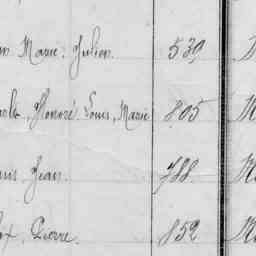 Marie Julien 539
Honoré Louis Marie 805
Jean 788
Pierre 852